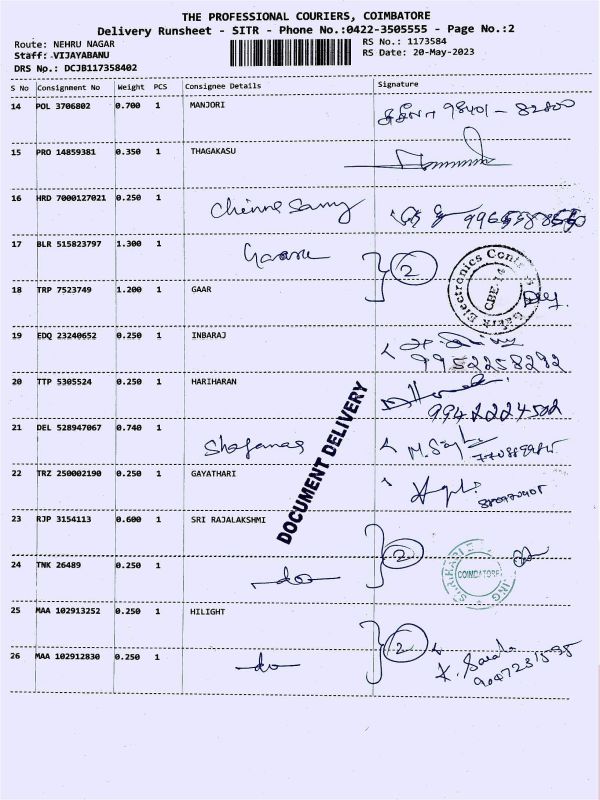 THE PROFESSIONAL COURIERS, COIMBATORE
Delivery Runsheet - SITR - Phone No.:0422-3505555 - Page No.:2
Route: NEHRU NAGAR
Staff: VIJAYABANU
DRS No.: DCJB117358402
RS No.: 1173584
RS Date: 20-May-2023
S No Consignment No Weight PCS Consignee Details Signature
14 POL 3706802 0.700 1 MANJORI 98401-82800
15 PRO 14859381 0.350 1 THAGAKASU
16 HRD 7000127021 0.250 1 Chinna Samy
17 BLR 515823797 1.300 1 2
18 TRP 7523749 1.200 1 GAAR
CBE-14
19 EDQ 23240652 0.250 1 INBARAJ 9952258292
20 TTP 5305524 0.250 1 HARIHARAN 9942224502
21 DEL 528947067 0.740 1
22 TRZ 250002190 0.250 1 GAYATHARI
DOCUMENT DELIVERY
23 RJP 3154113 0.600 1 SRI RAJALAKSHMI 2
24 TNK 26489 0.250 1 -do-
COIMBATORE
25 MAA 102913252 0.250 1 HILIGHT 2
26 MAA 102912830 0.250 1 -do- K.